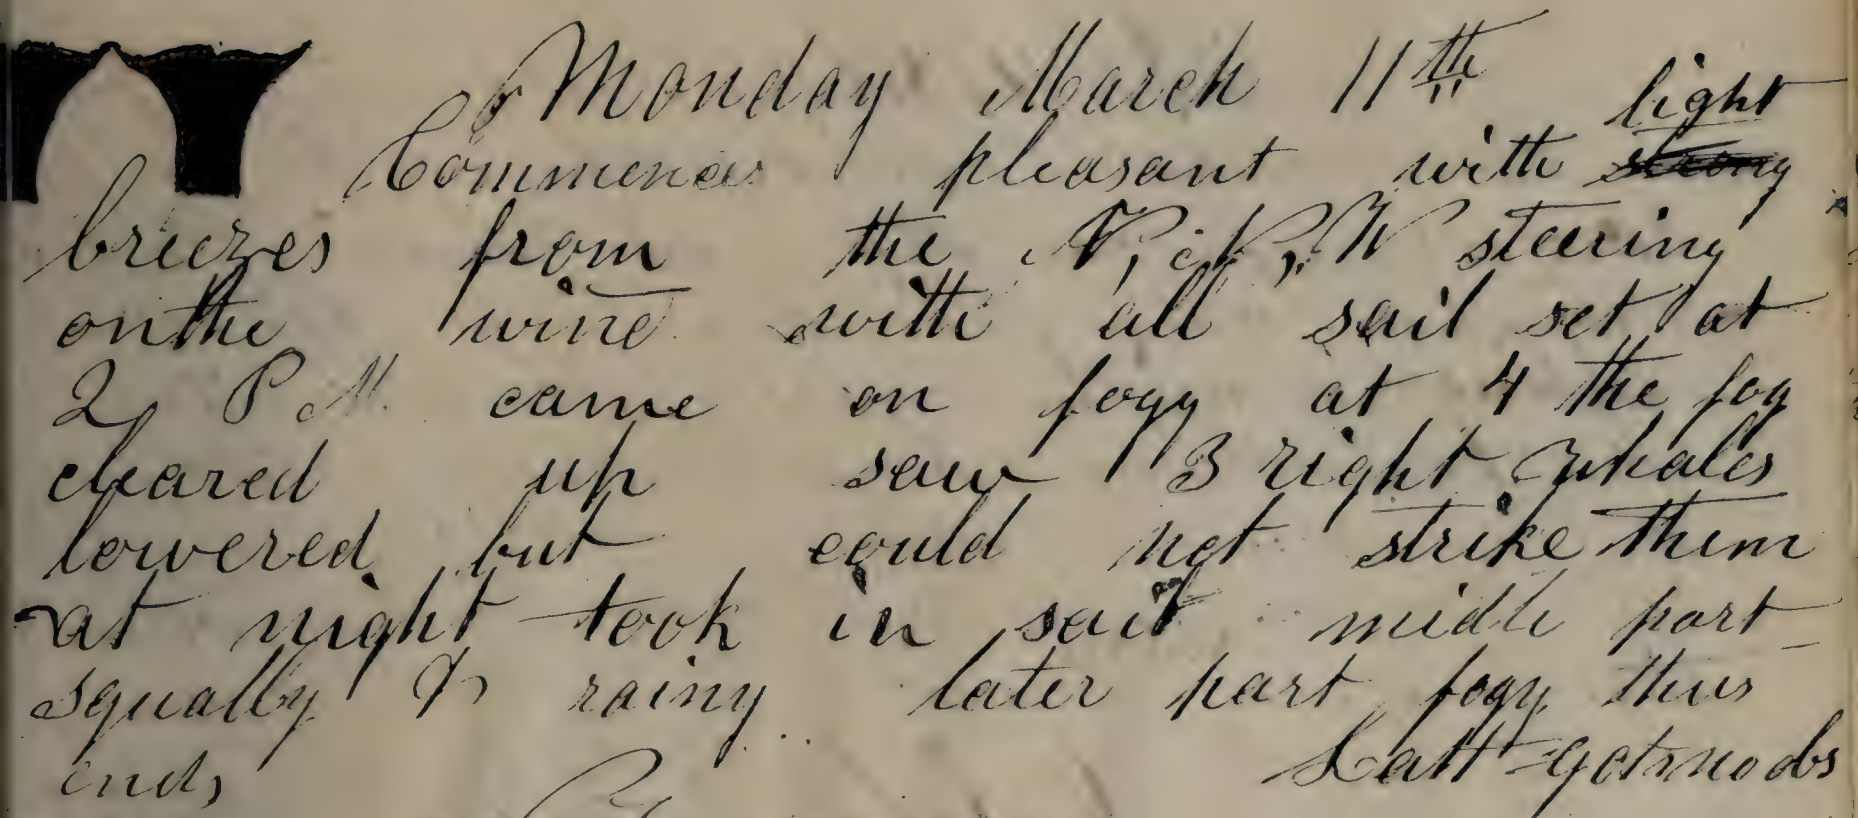 Monday March 11th
Commences pleasant with light strong
breezes from the N, N, W steering
onthe wind with all sail set at
2, P M. came on fogy at 4 the fog
cleared up saw 3 right whales
lowered but could not strike them
at night took in sail midle part
squally & rainy later part fogy thus
ends Latt = got no obs